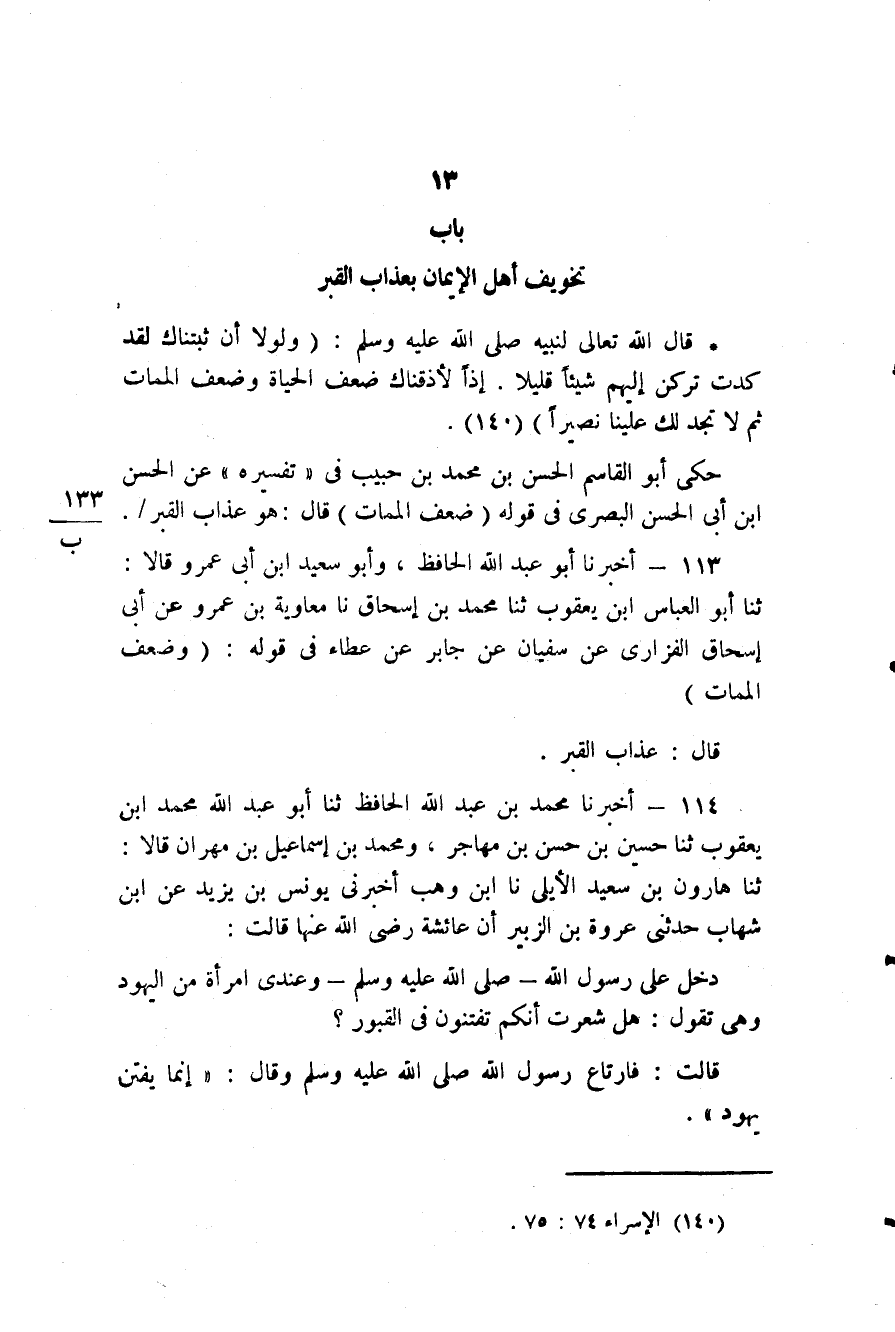 ١٣
باب
تخويف أهل الإيمان بعذاب القبر
* قال الله تعالى لنبيه صلى الله عليه وسلم : ( ولولا أن ثبتناك لقد
كدت تركن إليهم شيئاً قليلا . إذاً لأذقناك ضعف الحياة وضعف الممات
ثم لا تجد لك علينا نصيراً ) (١٤٠) .
حكى أبو القاسم الحسن بن محمد بن حبيب فى « تفسيره » عن الحسن
ابن أبى الحسن البصرى فى قوله ( ضعف الممات ) قال : هو عذاب القبر / .
١٣٣
ب
١١٣ – أخبرنا أبو عبد الله الحافظ ، وأبو سعيد ابن أبى عمرو قالا :
ثنا أبو العباس ابن يعقوب ثنا محمد بن إسحاق نا معاوية بن عمرو عن أبى
إسحاق الفزارى عن سفيان عن جابر عن عطاء فى قوله : ( وضعف
الممات )
قال : عذاب القبر .
١١٤ – أخبرنا محمد بن عبد الله الحافظ ثنا أبو عبد الله محمد ابن
يعقوب ثنا حسين بن حسن بن مهاجر ، ومحمد بن إسماعيل بن مهران قالا :
ثنا هارون بن سعيد الأيلى نا ابن وهب أخبرنى يونس بن يزيد عن ابن
شهاب حدثنى عروة بن الزبير أن عائشة رضى الله عنها قالت :
دخل على رسول الله – صلى الله عليه وسلم – وعندى امرأة من اليهود
وهى تقول : هل شعرت أنكم تفتنون فى القبور ؟
قالت : فارتاع رسول الله صلى الله عليه وسلم وقال : « إنما يفتن
يهود » .
(١٤٠) الإسراء ٧٤ : ٧٥ .